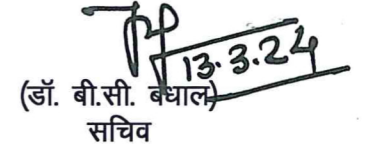 13.3.24
(डॉ. बी.सी. बधाल)
सचिव